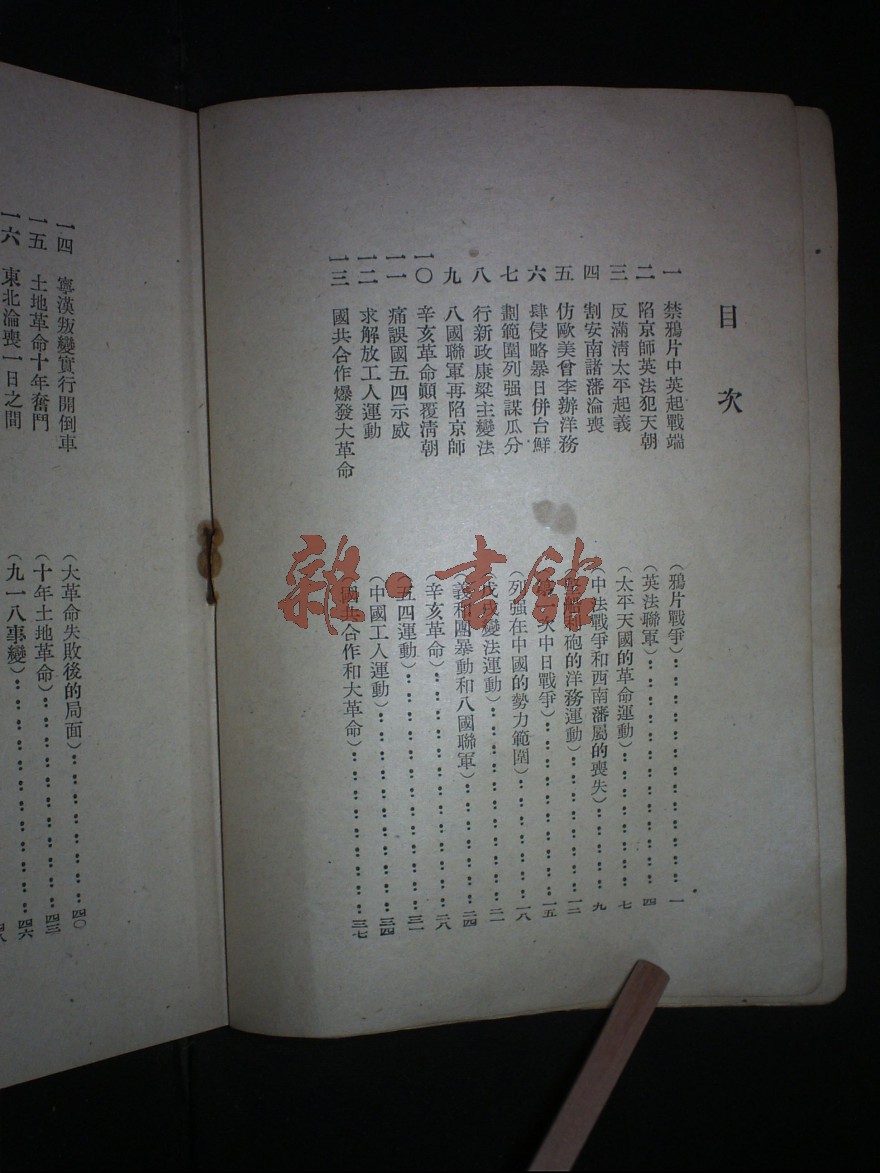 目次
一 禁鴉片中英起戰端 (鴉片戰爭)………一
二 陷京師英法犯天朝 (英法聯軍)………四
三 反滿淸太平起義 (太平天國的革命運動)………七
四 割安南諸藩淪喪 (中法戰爭和西南藩屬的喪失)………九
五 仿歐美曾李辦洋務 砲的洋務運動)………一二
六 肆侵略暴日併台鮮 次中日戰爭)………一五
七 劃範圍列强謀瓜分 (列强在中國的勢力範圍)………一八
八 行新政康梁主變法 (戊戌變法運動)………二一
九 八國聯軍再陷京師 (義和團暴動和八國聯軍)………二四
一〇 辛亥革命顚覆淸朝 (辛亥革命)………二八
一一 痛誤國五四示威 (五四運動)………三一
一二 求解放工人運動 (中國工人運動)………三四
一三 國共合作爆發大革命 (國共合作和大革命)………三七
一四 寧漢叛變實行開倒車 (大革命失敗後的局面)………四〇
一五 土地革命十年奮鬥 (十年土地革命)………四三
一六 東北淪喪一日之間 (九一八事變)………四六
四八
雜·書館